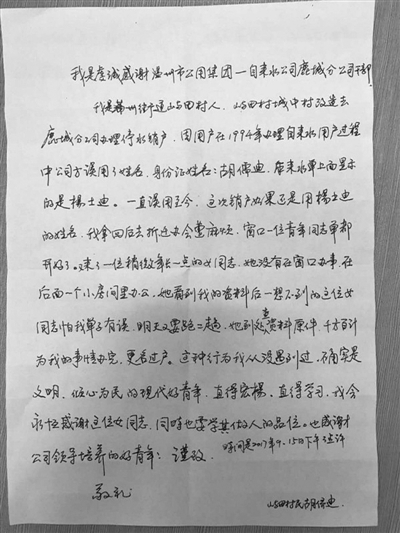 我是虔诚感谢温州市公用集团一自来水公司鹿城分公司干部
我是蒲州街道山田村人，山田村城中村改造去
鹿城分公司办理停水销户，因用户在1994年办理自来水用户过程
中公司方误用了姓名，身份证姓名：胡儒迪，质来水单上面显示
的是楊士迪。一直误用至今，这次销户如果还是用楊士迪
的姓名，我拿回去拆迁办会蛮麻烦，窗口一位青年同志单都
开好了。来了一位稍微年长一点的女同志，她没有在窗口办事，在
后面一个小房间里办公，她看到我的资料后一想不到的这位女
同志怕我单子有误，明天又要跑二趟，她到处查资料原件，千方百计
为我的事情办完，更名过户。这种行为我从没遇到过，确实是
文明，倾心为民的现代好青年，直得宏楊，直得学习，我会
永恒感谢这位女同志，同时也要学其做人的品位。也感谢
公司领导培养的好青年！谨致
时间是2017年9.15日下午
敬礼
山田村民胡儒迪.